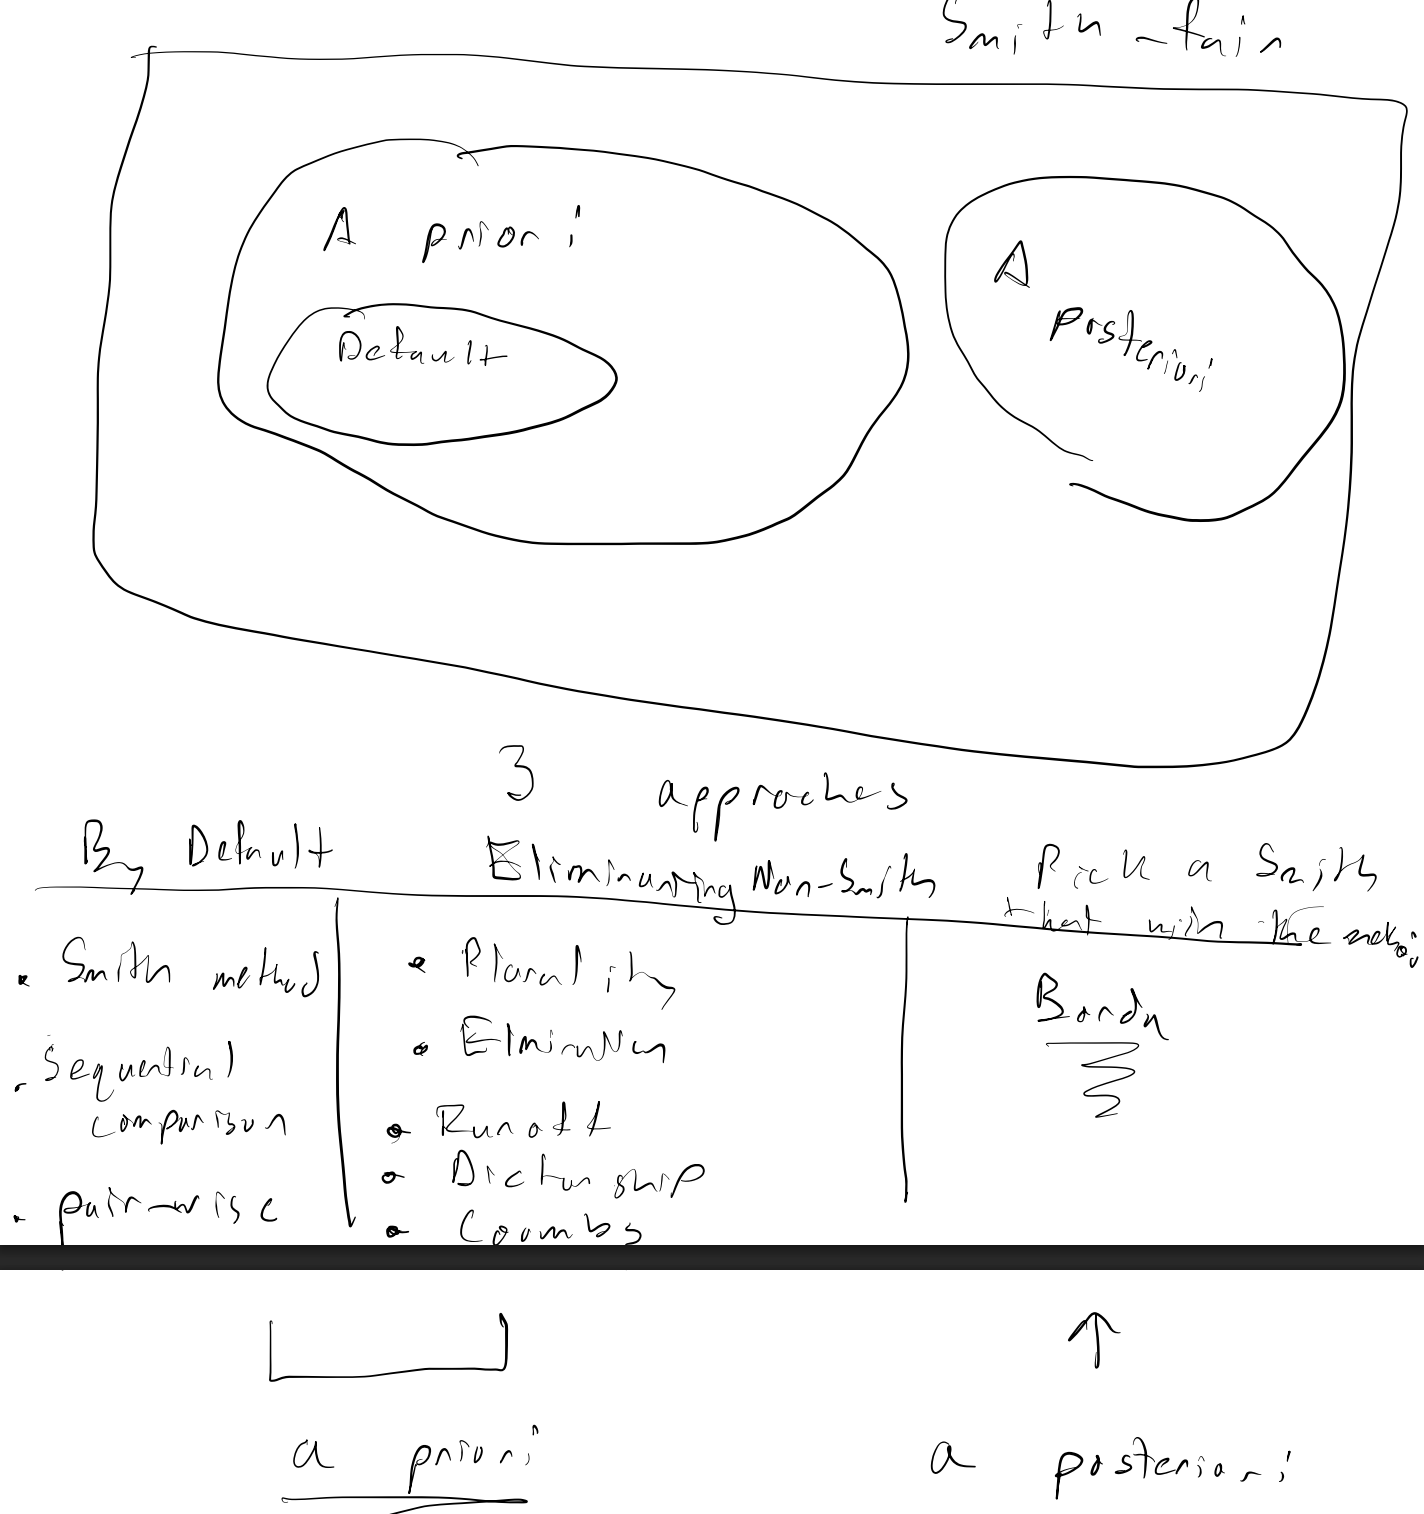 Smith-fair
A priori
Default
A
posteriori
3 approaches
By Default
Eliminating Non-Smith
Pick a Smith
that with the
• Smith method
• Sequential
comparison
• pair-wise
• Plurality
• Elmination
• Runoff
• Dictarship
• Coombs
Borda
a priori
a posteriori